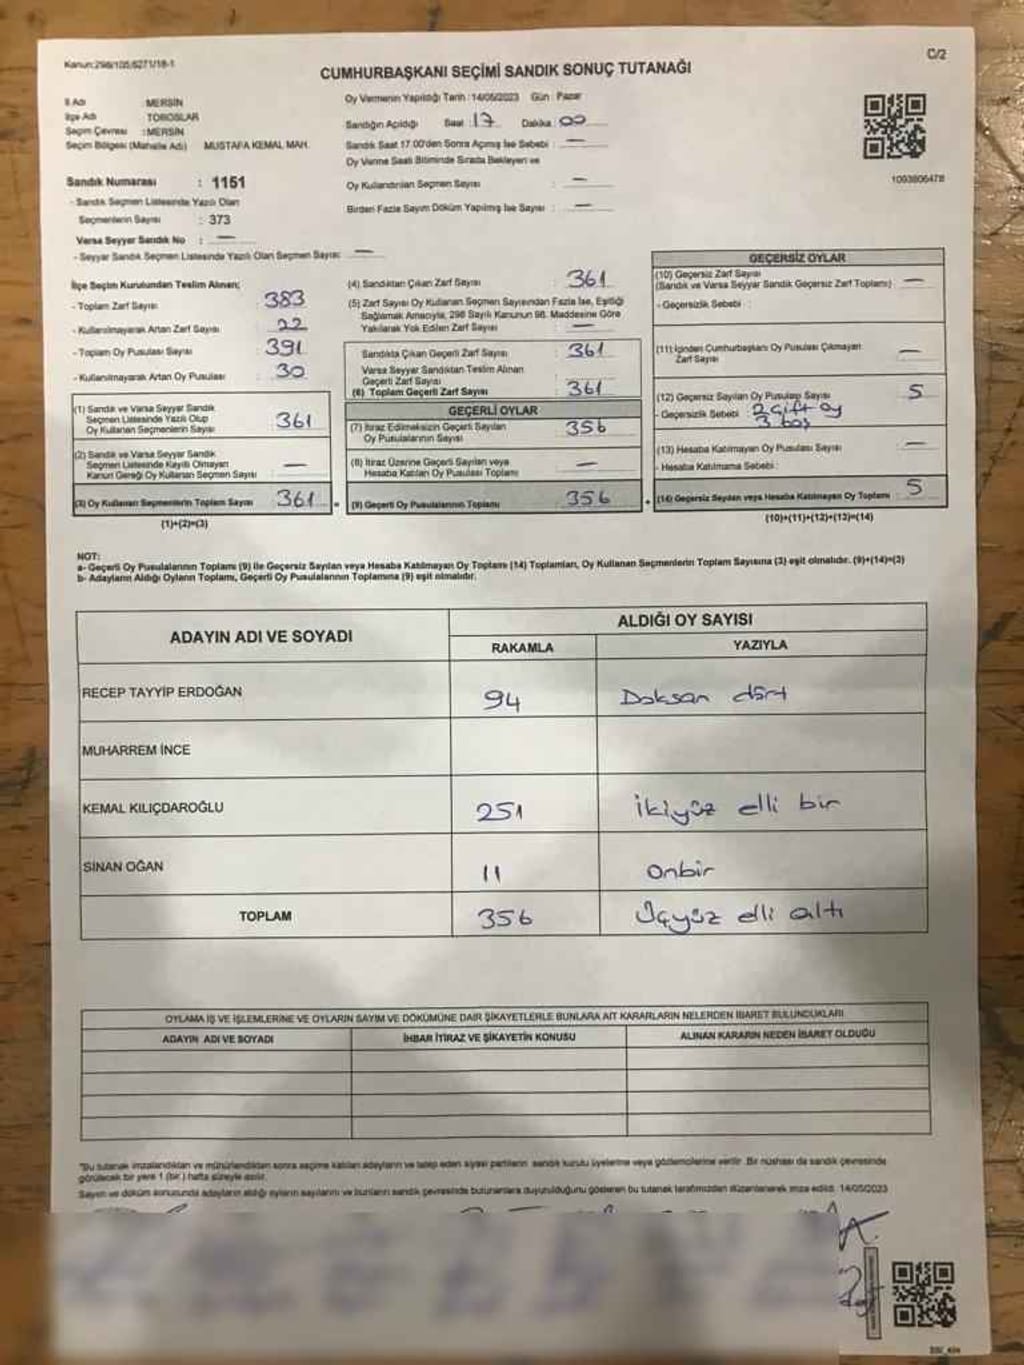 Kanun:298/105,6271/18-1
C/2
CUMHURBAŞKANI SEÇİMİ SANDIK SONUÇ TUTANAĞI
İl Adı : MERSİN
İlçe Adı : TOROSLAR
Seçim Çevresi : MERSİN
Seçim Bölgesi (Mahalle Adı) MUSTAFA KEMAL MAH.
Oy Vermenin Yapıldığı Tarih : 14/05/2023 Gün : Pazar
Sandığın Açıldığı Saat : 17 Dakika : 00
Sandık Saat 17.00'den Sonra Açımış İse Sebebi : —
Oy Verme Saati Bitiminde Sırada Bekleyen ve
Oy Kullandırılan Seçmen Sayısı : —
Birden Fazla Sayım Döküm Yapılmış İse Sayısı : —
1093806478
Sandık Numarası : 1151
- Sandık Seçmen Listesinde Yazılı Olan
Seçmenlerin Sayısı : 373
Varsa Seyyar Sandık No : —
- Seyyar Sandık Seçmen Listesinde Yazılı Olan Seçmen Sayısı: —
İlçe Seçim Kurulundan Teslim Alınan;
- Toplam Zarf Sayısı : 383
- Kullanılmayarak Artan Zarf Sayısı : 22
- Toplam Oy Pusulası Sayısı : 391
- Kullanılmayarak Artan Oy Pusulası : 30
(1) Sandık ve Varsa Seyyar Sandık
Seçmen Listesinde Yazılı Olup
Oy Kullanan Seçmenlerin Sayısı : 361
(2) Sandık ve Varsa Seyyar Sandık
Seçmen Listesinde Kayıtlı Olmayan
Kanun Gereği Oy Kullanan Seçmen Sayısı : —
(3) Oy Kullanan Seçmenlerin Toplam Sayısı : 361
(1)+(2)=(3)
(4) Sandıktan Çıkan Zarf Sayısı : 361
(5) Zarf Sayısı Oy Kullanan Seçmen Sayısından Fazla İse, Eşitliği
Sağlamak Amacıyla, 298 Sayılı Kanunun 98. Maddesine Göre
Yakılarak Yok Edilen Zarf Sayısı : —
Sandıkta Çıkan Geçerli Zarf Sayısı : 361
Varsa Seyyar Sandıktan Teslim Alınan
Geçerli Zarf Sayısı
(6) Toplam Geçerli Zarf Sayısı : 361
GEÇERLİ OYLAR
(7) İtiraz Edilmeksizin Geçerli Sayılan
Oy Pusulalarının Sayısı : 356
(8) İtiraz Üzerine Geçerli Sayılan veya
Hesaba Katılan Oy Pusulası Toplamı : —
(9) Geçerli Oy Pusulalarının Toplamı : 356
GEÇERSİZ OYLAR
(10) Geçersiz Zarf Sayısı
(Sandık ve Varsa Seyyar Sandık Geçersiz Zarf Toplamı) : —
- Geçersizlik Sebebi :
(11) İçinden Cumhurbaşkanı Oy Pusulası Çıkmayan
Zarf Sayısı : —
(12) Geçersiz Sayılan Oy Pusulası Sayısı : 5
- Geçersizlik Sebebi : 2 çift oy
3 boş
(13) Hesaba Katılmayan Oy Pusulası Sayısı : —
- Hesaba Katılmama Sebebi :
(14) Geçersiz Sayılan veya Hesaba Katılmayan Oy Toplamı : 5
(10)+(11)+(12)+(13)=(14)
NOT:
a- Geçerli Oy Pusulalarının Toplamı (9) ile Geçersiz Sayılan veya Hesaba Katılmayan Oy Toplamı (14) Toplamları, Oy Kullanan Seçmenlerin Toplam Sayısına (3) eşit olmalıdır. (9)+(14)=(3)
b- Adayların Aldığı Oyların Toplamı, Geçerli Oy Pusulalarının Toplamına (9) eşit olmalıdır.
ADAYIN ADI VE SOYADI
ALDIĞI OY SAYISI
RAKAMLA YAZIYLA
RECEP TAYYİP ERDOĞAN 94 Doksan dört
MUHARREM İNCE
KEMAL KILIÇDAROĞLU 251 İkiyüz elli bir
SİNAN OĞAN 11 onbir
TOPLAM 356 Üçyüz elli altı
OYLAMA İŞ VE İŞLEMLERİNE VE OYLARIN SAYIM VE DÖKÜMÜNE DAİR ŞİKAYETLERLE BUNLARA AİT KARARLARIN NELERDEN İBARET BULUNDUKLARI
ADAYIN ADI VE SOYADI İHBAR İTİRAZ VE ŞİKAYETİN KONUSU ALINAN KARARIN NEDEN İBARET OLDUĞU
"Bu tutanak imzalandıktan ve mühürlendikten sonra seçime katılan adayların ve talep eden siyasi partilerin sandık kurulu üyelerine veya gözlemcilerine verilir. Bir nüshası da sandık çevresinde
görülecek bir yere 1 (bir) hafta süreyle asılır.
Sayım ve döküm sonucunda adayların aldığı oyların sayılarını ve bunların sandık çevresinde bulunanlara duyurulduğunu gösteren bu tutanak tarafımızdan düzenlenerek imza edildi. 14/05/2023